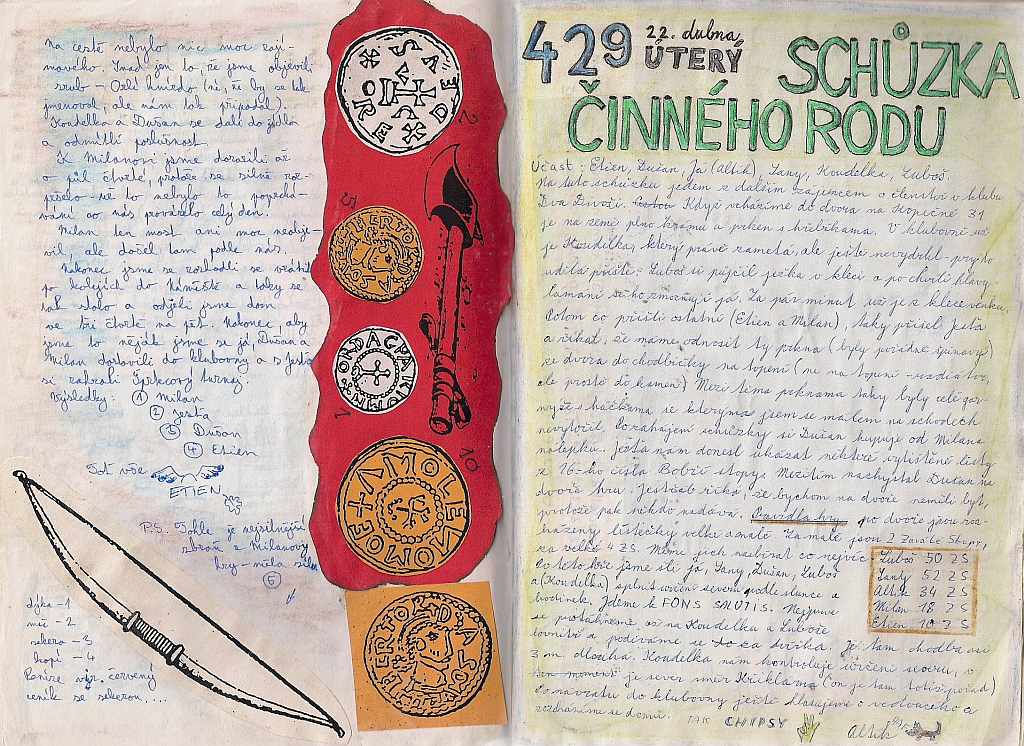 na cestě nebylo nic moc zají-
mavého. Snad jen to, že jsme objevili
srub – Orlí hnízdo (ne, že by se tak
jmenoval, ale nám tak připadal).
Koudelka a Dušan se dali do jídla
a odmítli poslušnost.
K Milanovi jsme dorazili až
o půl čtvrté, protože se silně roz-
pršelo – ne to nebylo to poprchá-
vání co nás provázelo celý den.
Milan ten most ani moc neobje-
vil, ale dočel tam podle nás.
Nakonec jsme se rozhodli se vrátit
po kolejích do Náměště a taky se
tak stalo a odjeli jsme dom
ve tři čtvrtě na pět. Nakonec, aby
jsme to nějak jsme se já, Dušan a
Milan dostavili do klubovny a s Jestou
si zahráli šipkový turnaj.
Výsledky: ① Milan
② Jesta
③ Dušan
④ Etien
Tot vše
ETIEN
P.S. Tohle je nejsilnější
zbraň z Milanovy
hry – měla sílu
⑤
dýka – 1
meč – 2
sekera – 3
kopí – 4
Peníze viz. červený
ceník se sekerou....
2
5
4
1
10
429 22. dubna
ÚTERÝ
SCHŮZKA
ČINNÉHO RODU
Účast: Etien, Dušan, Já (Altík), Lany, Koudelka, Luboš.
Na tuto schůzku jedem z dalším zájemcem o členství v klubu
Dva Divoši. Když vcházíme do dvora na Kopečné 31
je na zemi plno krámu a prken s hřebíkama. V klubovně už
je Koudelka, který právě zametá, ale ještě nevydržel – prý to
udělá příště. Luboš si půjčil ježka v kleci a po chvíli hlavy
lámání se ho zmocňuji já. Za pár minut už je z klece venku.
Potom co přišli ostatní (Etien a Milan), taky přišel Jesťa
a říkal, že máme odnosit ty prkna (byly pořádně špinavý)
ze dvora do chodbičky na topení (ne na topení – radiátor,
ale prostě do kamen) Mezi těma prknama taky byly celé gar-
nyže s háčkama se kterýma jsem se málem na schodech
nevytočil. Po zahájení schůzky si Dušan kupuje od Milana
nálepku. Jesťa nám donesl ukázat některé vytištěné listy
z 16-ho čísla Bobří stopy. Mezitím nachystal Dušan na
dvoře hru. Jestřáb říká, že bychom na dvoře neměli být,
protože pak někdo nadává. Pravidla hry: po dvoře jsou roz-
házeny lístečky velké a malé. Za malé jsou 2 Zlaté Stopy,
za velké 4 ZS. Máme jich nasbírat co nejvíc.
Po této hře jsme šli já, Lany, Dušan, Luboš
a (Koudelka) splnit určení severu podle slunce a
hodinek. Jdeme k FONS SALUTIS. Nejprve
se protáhneme až na Koudelku a Luboše
dovnitř a podíváme se to za dvířka. Je tam chodba asi
3 m dlouhá. Koudelka nám kontroluje určení severu, v
ten moment je sever směr Křiklava (on je tam totiž pořád)
Po návratu do klubovny ještě diskutujeme o vedoucího a
rozcházíme se domů.
Luboš 50 ZS
Lany 52 ZS
Altík 34 ZS
Milan 18 ZS
Etien 10 ZS
TAK CHIPSY
Altík